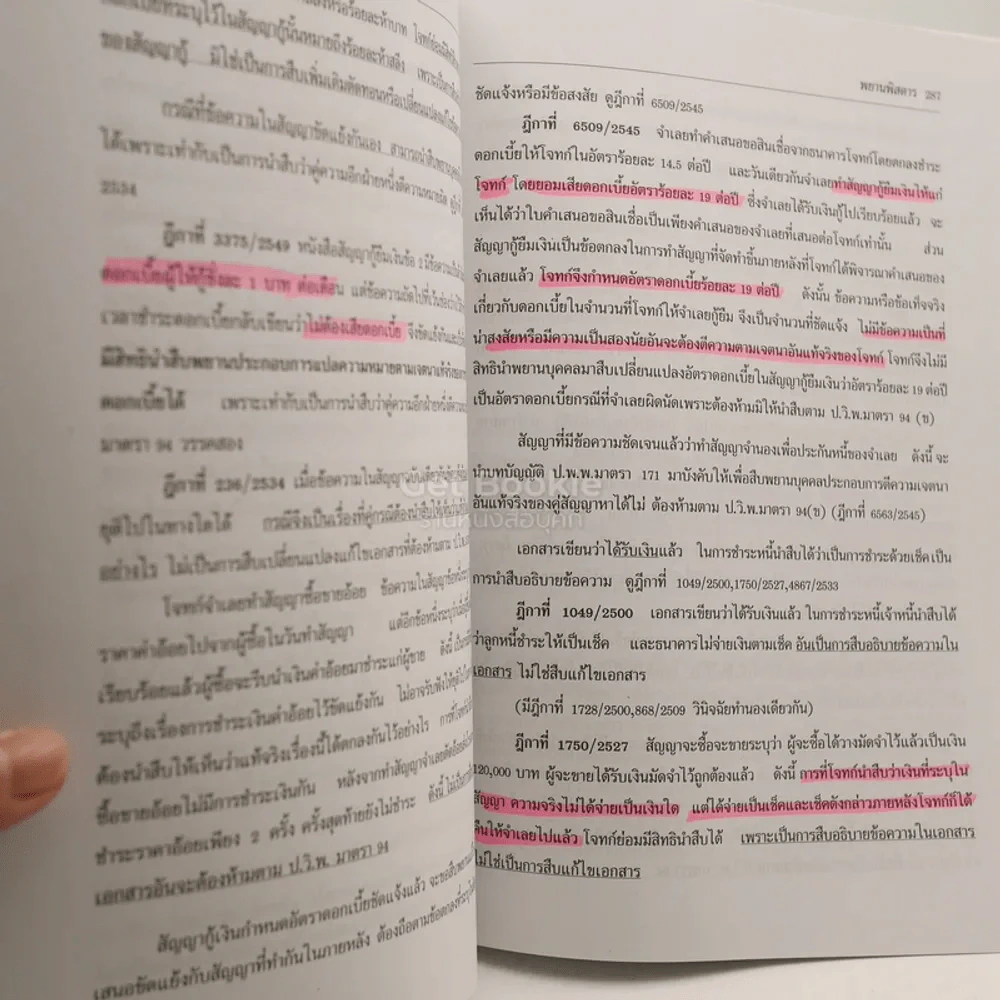 ของสัญญากู้ มิใช่เป็นการสืบเพิ่มเติมตัดทอนหรือเปลี่ยนแปลง
กรณีที่ข้อความในสัญญาขัดแย้งกันเอง สามารถนำสืบ
ได้เพราะเท่ากับเป็นการนำสืบว่าคู่ความอีกฝ่ายหนึ่งตีความหมายผิด
2534
ฎีกาที่ 3375/2549 หนังสือสัญญากู้ยืมเงินข้อ 2 มีข้อความ
ดอกเบี้ยผู้ให้กู้ชั่งละ 1 บาท ต่อเดือน แต่ข้อความถัดไปที่
เวลาชำระดอกเบี้ยกลับเขียนว่าไม่ต้องเสียดอกเบี้ย จึงขัดแย้งกัน
มีสิทธินำสืบพยานประกอบการแปลความหมายตามเจตนาแท้จริง
ดอกเบี้ยได้ เพราะเท่ากับเป็นการนำสืบว่าคู่ความอีกฝ่ายหนึ่งตีความ
มาตรา 94 วรรคสอง
ฎีกาที่ 236/2534 เมื่อข้อความในสัญญาฉบับเดียวกัน
ยุติไปในทางใดได้ กรณีจึงเป็นเรื่องที่คู่กรณีต้องนำสืบให้เห็น
อย่างไร ไม่เป็นการสืบเปลี่ยนแปลงแก้ไขเอกสารที่ต้องห้ามตาม
โจทก์จำเลยทำสัญญาซื้อขายอ้อย ข้อความในสัญญาข้อหนึ่ง
ราคาค่าอ้อยไปจากผู้ซื้อในวันทำสัญญา แต่อีกข้อหนึ่งระบุ
เรียบร้อยแล้วผู้ซื้อจะรีบนำเงินค่าอ้อยมาชำระแก่ผู้ขาย ดังนี้
ระบุถึงเรื่องการชำระเงินค่าอ้อยไว้ขัดแย้งกัน ไม่อาจรับฟังให้ยุติ
ต้องนำสืบให้เห็นว่าแท้จริงเรื่องนี้ได้ตกลงกันไว้อย่างไร การที่
ซื้อขายอ้อยไม่มีการชำระเงินกัน หลังจากทำสัญญาจำเลย
ชำระราคาอ้อยเพียง 2 ครั้ง ครั้งสุดท้ายยังไม่ชำระ ดังนี้ ไม่เป็นการ
เอกสารอันจะต้องห้ามตาม ป.วิ.พ. มาตรา 94
สัญญากู้เงินกำหนดอัตราดอกเบี้ยชัดแจ้งแล้ว จะขอสืบพยาน
เสนอขัดแย้งกับสัญญาที่ทำกันในภายหลัง ต้องถือตามข้อตกลงที่ระบุ
พยานพิสดาร 287
ชัดแจ้งหรือมีข้อสงสัย ดูฎีกาที่ 6509/2545
ฎีกาที่ 6509/2545 จำเลยทำคำเสนอขอสินเชื่อจากธนาคารโจทก์โดยตกลงชำระ
ดอกเบี้ยให้โจทก์ในอัตราร้อยละ 14.5 ต่อปี และวันเดียวกันจำเลยทำสัญญากู้ยืมเงินให้แก่
โจทก์ โดยยอมเสียดอกเบี้ยอัตราร้อยละ 19 ต่อปี ซึ่งจำเลยได้รับเงินกู้ไปเรียบร้อยแล้ว จะ
เห็นได้ว่าใบคำเสนอขอสินเชื่อเป็นเพียงคำเสนอของจำเลยที่เสนอต่อโจทก์เท่านั้น ส่วน
สัญญากู้ยืมเงินเป็นข้อตกลงในการทำสัญญาที่จัดทำขึ้นภายหลังที่โจทก์ได้พิจารณาคำเสนอของ
จำเลยแล้ว โจทก์จึงกำหนดอัตราดอกเบี้ยร้อยละ 19 ต่อปี ดังนั้น ข้อความหรือข้อเท็จจริง
เกี่ยวกับดอกเบี้ยในจำนวนที่โจทก์ให้จำเลยกู้ยืม จึงเป็นจำนวนที่ชัดแจ้ง ไม่มีข้อความเป็นที่
น่าสงสัยหรือมีความเป็นสองนัยอันจะต้องตีความตามเจตนาอันแท้จริงของโจทก์ โจทก์จึงไม่มี
สิทธินำพยานบุคคลมาสืบเปลี่ยนแปลงอัตราดอกเบี้ยในสัญญากู้ยืมเงินว่าอัตราร้อยละ 19 ต่อปี
เป็นอัตราดอกเบี้ยกรณีที่จำเลยผิดนัดเพราะต้องห้ามมิให้นำสืบตาม ป.วิ.พ.มาตรา 94 (ข)
สัญญาที่มีข้อความชัดเจนแล้วว่าทำสัญญาจำนองเพื่อประกันหนี้ของจำเลย ดังนี้ จะ
นำบทบัญญัติ ป.พ.พ.มาตรา 171 มาบังคับใช้เพื่อสืบพยานบุคคลประกอบการตีความเจตนา
อันแท้จริงของคู่สัญญาหาได้ไม่ ต้องห้ามตาม ป.วิ.พ.มาตรา 94(ข) (ฎีกาที่ 6563/2545)
Get Bookie
ร้านหนังสือบุ๊คกี้
เอกสารเขียนว่าได้รับเงินแล้ว ในการชำระหนี้นำสืบได้ว่าเป็นการชำระด้วยเช็ค เป็น
การนำสืบอธิบายข้อความ ดูฎีกาที่ 1049/2500,1750/2527,4867/2533
ฎีกาที่ 1049/2500 เอกสารเขียนว่าได้รับเงินแล้ว ในการชำระหนี้เจ้าหนี้นำสืบได้
ว่าลูกหนี้ชำระให้เป็นเช็ค และธนาคารไม่จ่ายเงินตามเช็ค อันเป็นการสืบอธิบายข้อความใน
เอกสาร ไม่ใช่สืบแก้ไขเอกสาร
(มีฎีกาที่ 1728/2500,868/2509 วินิจฉัยทำนองเดียวกัน)
ฎีกาที่ 1750/2527 สัญญาจะซื้อจะขายระบุว่า ผู้จะซื้อได้วางมัดจำไว้แล้วเป็นเงิน
120,000 บาท ผู้จะขายได้รับเงินมัดจำไว้ถูกต้องแล้ว ดังนี้ การที่โจทก์นำสืบว่าเงินที่ระบุใน
สัญญา ความจริงไม่ได้จ่ายเป็นเงินใด แต่ได้จ่ายเป็นเช็คและเช็คดังกล่าวภายหลังโจทก์ก็ได้
คืนให้จำเลยไปแล้ว โจทก์ย่อมมีสิทธินำสืบได้ เพราะเป็นการสืบอธิบายข้อความในเอกสาร
ไม่ใช่เป็นการสืบแก้ไขเอกสาร